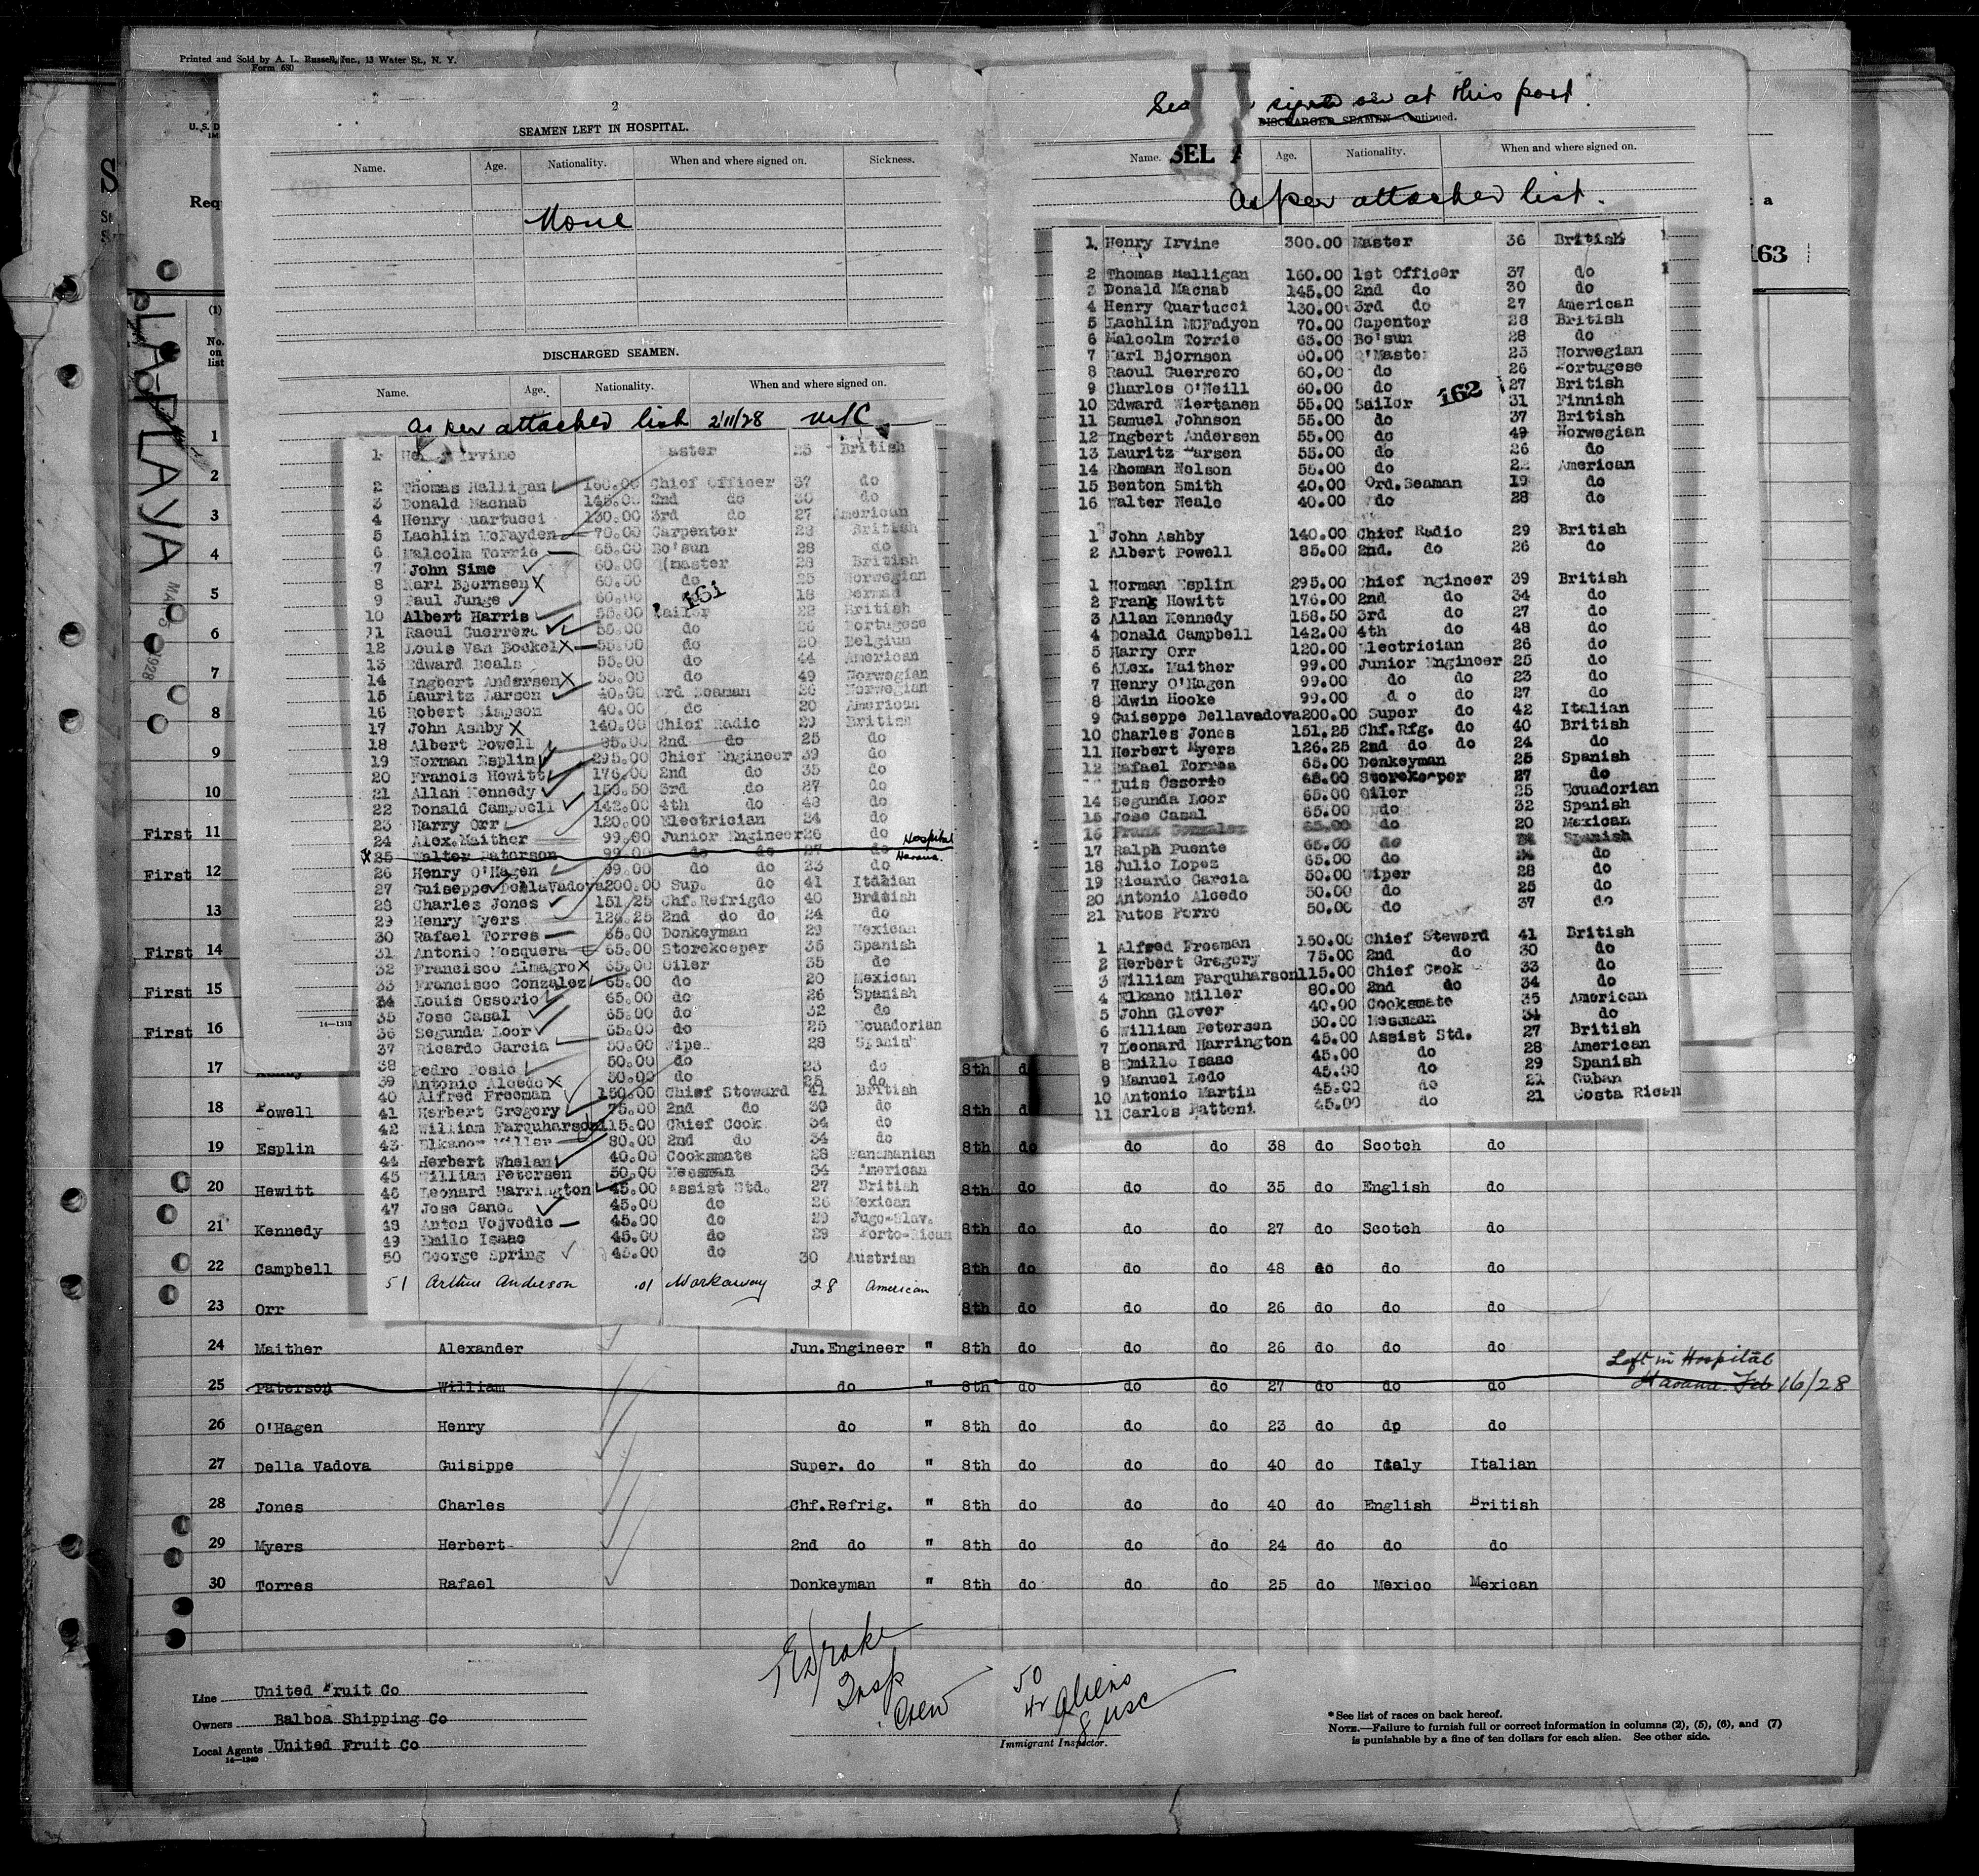 Printed and Sold by A. L. Russell, Inc., 13 Water St., N. Y.
Form 630
2
SEAMEN LEFT IN HOSPITAL.
Name. Age. Nationality. When and where signed on. Sickness.
None
DISCHARGED SEAMEN.
Name. Age. Nationality. When and where signed on.
As per attached list 2/11/28
1 Irvine aster 25 British
2 Thomas Halligan 160.00 Chief Officer 37 do
3 Donald Macnab 145.00 2nd do 30 do
4 Henry Quartucci 130.00 3rd do 27 American
5 Lachlin McFayden 70.00 Carpenter 28 British
6 Malcolm Torrie 65.00 Bo'sun 28 do
7 John Sime 60.00 Q'master 28 British
8 Karl Bjornsen X 60.00 do 25 Norwegian
9 Paul Junge 60.00 18
161
10 Albert Harris 55.00 Sailor 22 British
11 Raoul Guerrero 55.00 do 26 Portugese
12 Louis Van Bockel X 55.00 do 20 Belgium
13 Edward Beals 55.00 do 44 American
14 Ingbert Andersen X 55.00 do 49 Norwegian
15 Lauritz Larsen 40.00 Ord Seaman 26 Norwegian
16 Robert Simpson 40.00 do 20 American
17 John Ashby X 140.00 Chief Radio 29 British
18 Albert Powell 85.00 2nd do 25 do
19 Norman Esplin 295.00 Chief Engineer 39 do
20 Francis Hewitt 176.00 2nd do 35 do
21 Allan Kennedy 158.50 3rd do 27 do
22 Donald Campbell 142.00 4th do 48 do
23 Harry Orr 120.00 Electrician 24 do
24 Alex.Maither 99.00 Junior Engineer 26 do
X 25 Walter Paterson 99.00 do do 27 do Hospital Havana.
26 Henry O'Hagen 99.00 do do 23 do
27 Guiseppe DellaVadova 200.00 Sup. do 41 Italian
28 Charles Jones 151.25 Chf.Refrigdo 40 British
29 Henry Myers 126.25 2nd do do 24 do
30 Rafael Torres 65.00 Donkeyman 29 Mexican
31 Antonio Mosquera 65.00 Storekeeper 35 Spanish
32 Francisco Almagro X 65.00 Oiler 35 do
33 Francisco Gonzalez 65.00 do 20 Mexican
34 Louis Ossorio 65.00 do 26 Spanish
35 Jose Casal 65.00 do 32 do
36 Segunda Loor 65.00 do 25 Ecuadorian
37 Ricardo Garcia 50.00 Wiper 28 Spanish
38 Pedro Posio 50.00 do 23 do
39 Antonio Alcedo X 50.00 do 25 do
40 Alfred Freeman 150.00 Chief Steward 41 British
41 Herbert Gregory 75.00 2nd do 30 do
42 William Farquharson 115.00 Chief Cook 34 do
43 Elkanor Miller 80.00 2nd do 34 do
44 Herbert Whelan 40.00 Cooksmate 28 Panamanian
45 William Petersen 50.00 Messman 34 American
46 Leonard Harrington 45.00 Assist Std. 27 British
47 Jose Cano 45.00 do 26 Mexican
48 Anton Vojvodic 45.00 do 29 Jugo-Slav.
49 Emilo Isaac 45.00 do 29 Porto-Rican
50 George Spring 45.00 do 30 Austrian
51 Arthur Anderson .01 Workaway 28 American
signed on at this port.
DISCHARGED SEAMEN Continued.
Name. Age. Nationality. When and where signed on.
SEL
As per attached list.
1. Henry Irvine 300.00 Master 36 British
2 Thomas Halligan 160.00 1st Officer 37 do
3 Donald Macnab 145.00 2nd do 30 do
4 Henry Quartucci 130.00 3rd do 27 American
5 Lachlin MCFadyen 70.00 Capenter 28 British
6 Malcolm Torrie 65.00 Bo'sun 28 do
7 Karl Bjornsen 60.00 Q'Master 25 Norwegian
8 Raoul Guerrero 60.00 do 26 Portugese
9 Charles O'Neill 60.00 do 27 British
162
10 Edward Wiertanen 55.00 Sailor 31 Finnish
11 Samuel Johnson 55.00 do 37 British
12 Ingbert Andersen 55.00 do 49 Norwegian
13 Lauritz Larsen 55.00 do 26 do
14 Rhoman Nelson 55.00 do 22 American
15 Benton Smith 40.00 Ord.Seaman 19 do
16 Walter Neale 40.00 do 28 do
1 John Ashby 140.00 Chief Radio 29 British
2 Albert Powell 85.00 2nd. do 26 do
1 Norman Esplin 295.00 Chief Engineer 39 British
2 Frank Hewitt 176.00 2nd do 34 do
3 Allan Kennedy 158.50 3rd do 27 do
4 Donald Campbell 142.00 4th do 48 do
5 Harry Orr 120.00 Electrician 26 do
6 ALex. Maither 99.00 Junior Engineer 25 do
7 Henry O'Hagen 99.00 do do 23 do
8 Edwin Hooke 99.00 do do 27 do
9 Guiseppe Dellavadova 200.00 Super do 42 Italian
10 Charles Jones 151.25 Chf.Rfg. do 40 British
11 Herbert Myers 126.25 2nd do do 24 do
12 Rafael Torres 65.00 Donkeyman 25 Spanish
Luis Ossorio 65.00 Storekeeper 27 do
14 Segunda Loor 65.00 Oiler 25 Ecuadorian
15 Jose Casal 65.00 do 32 Spanish
16 Frank Gonzalez 65.00 do 20 Mexican
17 Ralph Puente 65.00 do 24 Spanish
18 Julio Lopez 65.00 do 24 do
19 Ricardo Garcia 50.00 Wiper 28 do
20 Antonio Alcedo 50.00 do 25 do
21 Futos Ferro 50.00 do 37 do
1 Alfred Freeman 150.00 Chief Steward 41 British
2 Herbert Gregory 75.00 2nd do 30 do
3 William Farquharson 115.00 Chief Cook 33 do
4 Elkano Miller 80.00 2nd do 34 do
5 John Glover 40.00 Cooksmate 35 American
6 William Petersen 50.00 Messman 34 do
7 Leonard Harrington 45.00 Assist Std. 27 British
8 Emilio Isaac 45.00 do 28 American
9 Manuel Ledo 45.00 do 29 Spanish
10 Antonio Martin 45.00 do 21 Cuban
11 Carlos Battoni 45.00 do 21 Costa Rican
163
a
U. S. D
Req
LA PLAYA
1928
(1)
No. on list
1
2
3
4
5
6
7
8
9
10
First 11
First 12
13
First 14
First 15
First 16
14-1313
17 8th do
18 Powell 8th do
19 Esplin 8th do do do 38 do Scotch do
20 Hewitt 8th do do do 35 do English do
21 Kennedy 8th do do do 27 do Scotch do
22 Campbell 8th do do do 48 do do do
23 Orr 8th do do do 26 do do do
24 Maither Alexander Jun.Engineer " 8th do do do 26 do do do
25 Paterson William do " 8th do do do 27 do do do Left in Hospital Havana Feb 16/28
26 O'Hagen Henry do " 8th do do do 23 do do do
27 Della Vadova Guisippe Super. do " 8th do do do 40 do Italy Italian
28 Jones Charles Chf.Refrig. " 8th do do do 40 do English British
29 Myers Herbert 2nd do " 8th do do do 24 do do do
30 Torres Rafael Donkeyman " 8th do do do 25 do Mexico Mexican
Line United Fruit Co
Owners Balboa Shipping Co
Local Agents United Fruit Co
14-1240
Drake
Insp
Crew 50
42 Aliens
8 USC
Immigrant Inspector.
* See list of races on back hereof.
NOTE.—Failure to furnish full or correct information in columns (2), (5), (6), and (7)
is punishable by a fine of ten dollars for each alien. See other side.